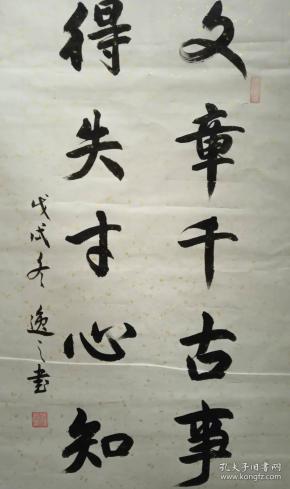 文章千古事
得失寸心知
戊戌冬 逸之书
孔夫子旧书网